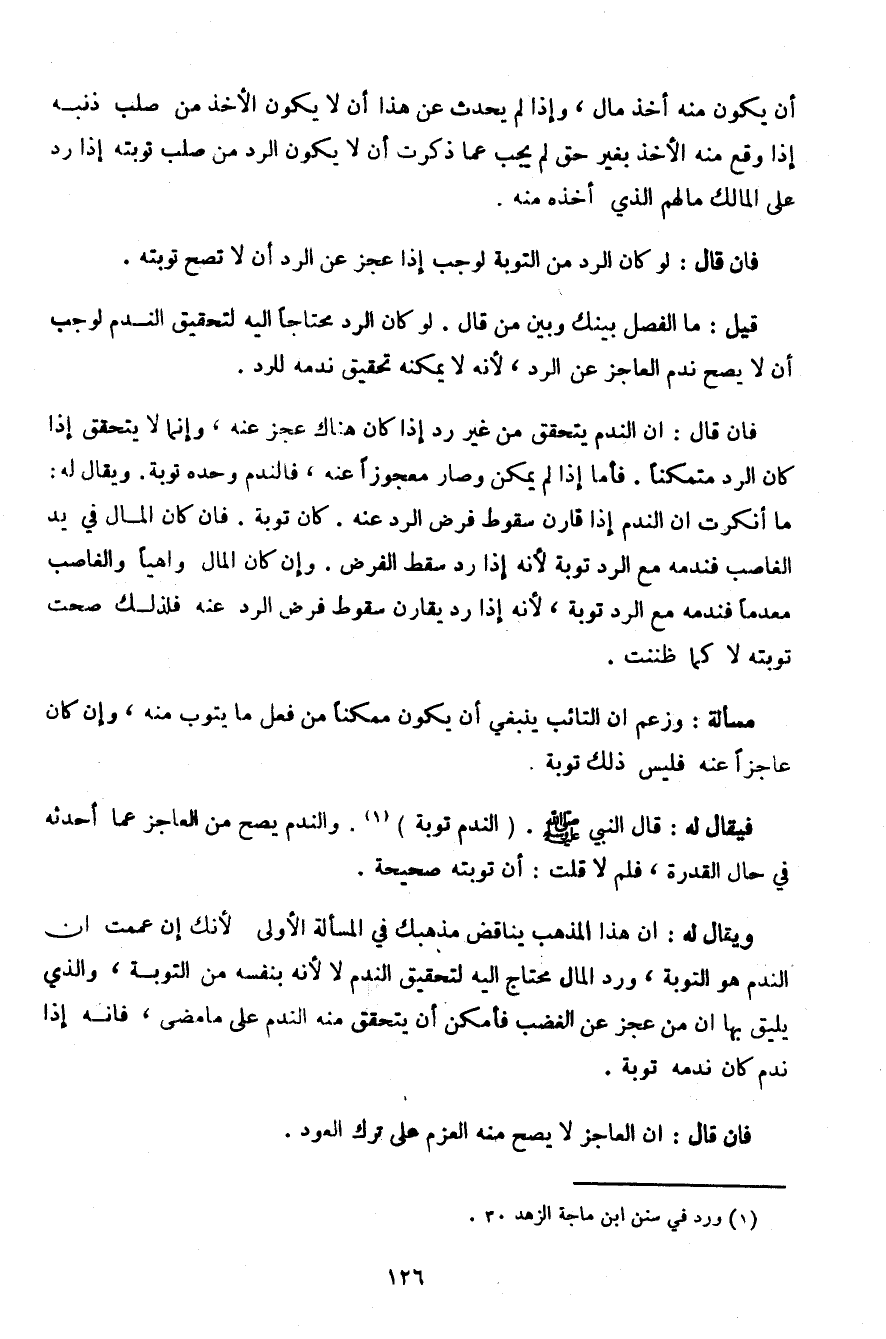 أن يكون منه أخذ مال ، وإذا لم يحدث عن هذا أن لا يكون الأخذ من صلب ذنبـه
إذا وقع منه الأخذ بغير حق لم يجب عما ذكرت أن لا يكون الرد من صلب توبته إذا رد
على المالك مالهم الذي أخذه منه .
فان قال : لو كان الرد من التوبة لوجب إذا عجز عن الرد أن لا تصح توبته .
قيل : ما الفصل بينك وبين من قال . لو كان الرد محتاجاً اليه لتحقيق النـدم لوجب
أن لا يصح ندم العاجز عن الرد ، لأنه لا يمكنه تحقيق ندمه للرد .
فان قال : ان الندم يتحقق من غير رد إذا كان هناك عجز عنه ، وإنما لا يتحقق إذا
كان الرد متمكناً . فأما إذا لم يمكن وصار معجوزاً عنه ، فالندم وحده توبة. ويقال له :
ما أنكرت ان الندم إذا قارن سقوط فرض الرد عنه . كان توبة . فان كان المـال في يد
الغاصب فندمه مع الرد توبة لأنه إذا رد سقط الفرض . وإن كان المال واهياً والغاصب
معدماً فندمه مع الرد توبة ، لأنه إذا رد يقارن سقوط فرض الرد عنه فلذلـك صحت
توبته لا كما ظننت .
مسألة : وزعم ان التائب ينبغي أن يكون ممكناً من فعل ما يتوب منه ، وإن كان
عاجزاً عنه فليس ذلك توبة .
فيقال له : قال النبي ﷺ . ( الندم توبة ) (١) . والندم يصح من العاجز عما أحدثه
في حال القدرة ، فلم لا قلت : أن توبته صحيحة .
ويقال له : ان هذا المذهب يناقض مذهبك في المسألة الأولى لأنك إن عممت ان
الندم هو التوبة ، ورد المال محتاج اليه لتحقيق الندم لا لأنه بنفسه من التوبـة ، والذي
يليق بها ان من عجز عن الغضب فأمكن أن يتحقق منه الندم على مامضى ، فانـه إذا
ندم كان ندمه توبة .
فان قال : ان العاجز لا يصح منه العزم على ترك العود .
(١) ورد في سنن ابن ماجة الزهد ٣٠ .
١٢٦